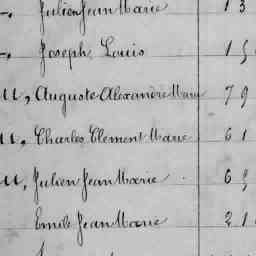 -, Julien Jean Marie 1 3
-, Joseph Louis 1 5
u, Auguste Alexandre Marie 7 9
u, Charles Clement Marie 6 1
u, Julien Jean Marie 6 3
Emile Jean Marie 2 1